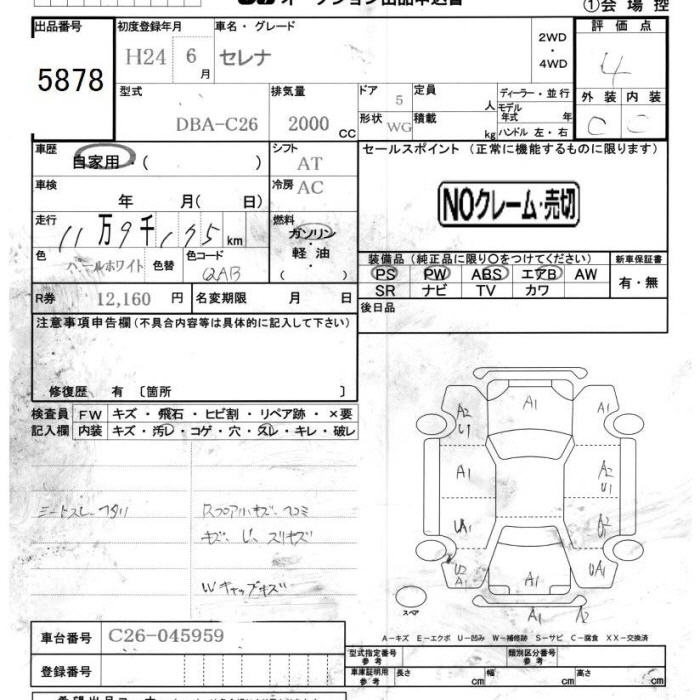 オークション出品申込書
①会場控
出品番号 初度登録年月 車名・グレード 2WD・4WD 評価点
5878 H24 6月 セレナ 4
型式 排気量 ドア 定員 ディーラー・並行 外装 内装
DBA-C26 2000 CC 5 人 モデル年式 年 C C
形状 WG 積載 kg ハンドル 左・右
車歴 シフト セールスポイント (正常に機能するものに限ります)
自家用・( ) AT
車検 冷房 AC
年 月( 日) NOクレーム・売切
走行 燃料
11万9千175km ガソリン・軽油 ( )
色 色替 色コード 装備品 (純正品に限り○をつけてください) 新車保証書
パールホワイト QAB PS PW ABS エアB AW 有・無
SR ナビ TV カワ
R券 12,160 円 名変期限 月 日 後日品
注意事項申告欄 (不具合内容等は具体的に記入して下さい)
修復歴 有 〔箇所 〕
検査員 FW キズ・飛石・ヒビ割・リペア跡・×要
記入欄 内装 キズ・汚レ・コゲ・穴・スレ・キレ・破レ
A2 U1 A1 A1
A1 A2 U1
UA1
U2 A1 A1 UA1
A1 A2
スペア
A-キズ E-エクボ U-凹み W-補修跡 S-サビ C-腐食 XX-交換済
車台番号 C26-045959 型式指定番号 参考 類別区分番号 参考
登録番号 車庫証明用 参考 長さ cm 幅 cm 高さ cm